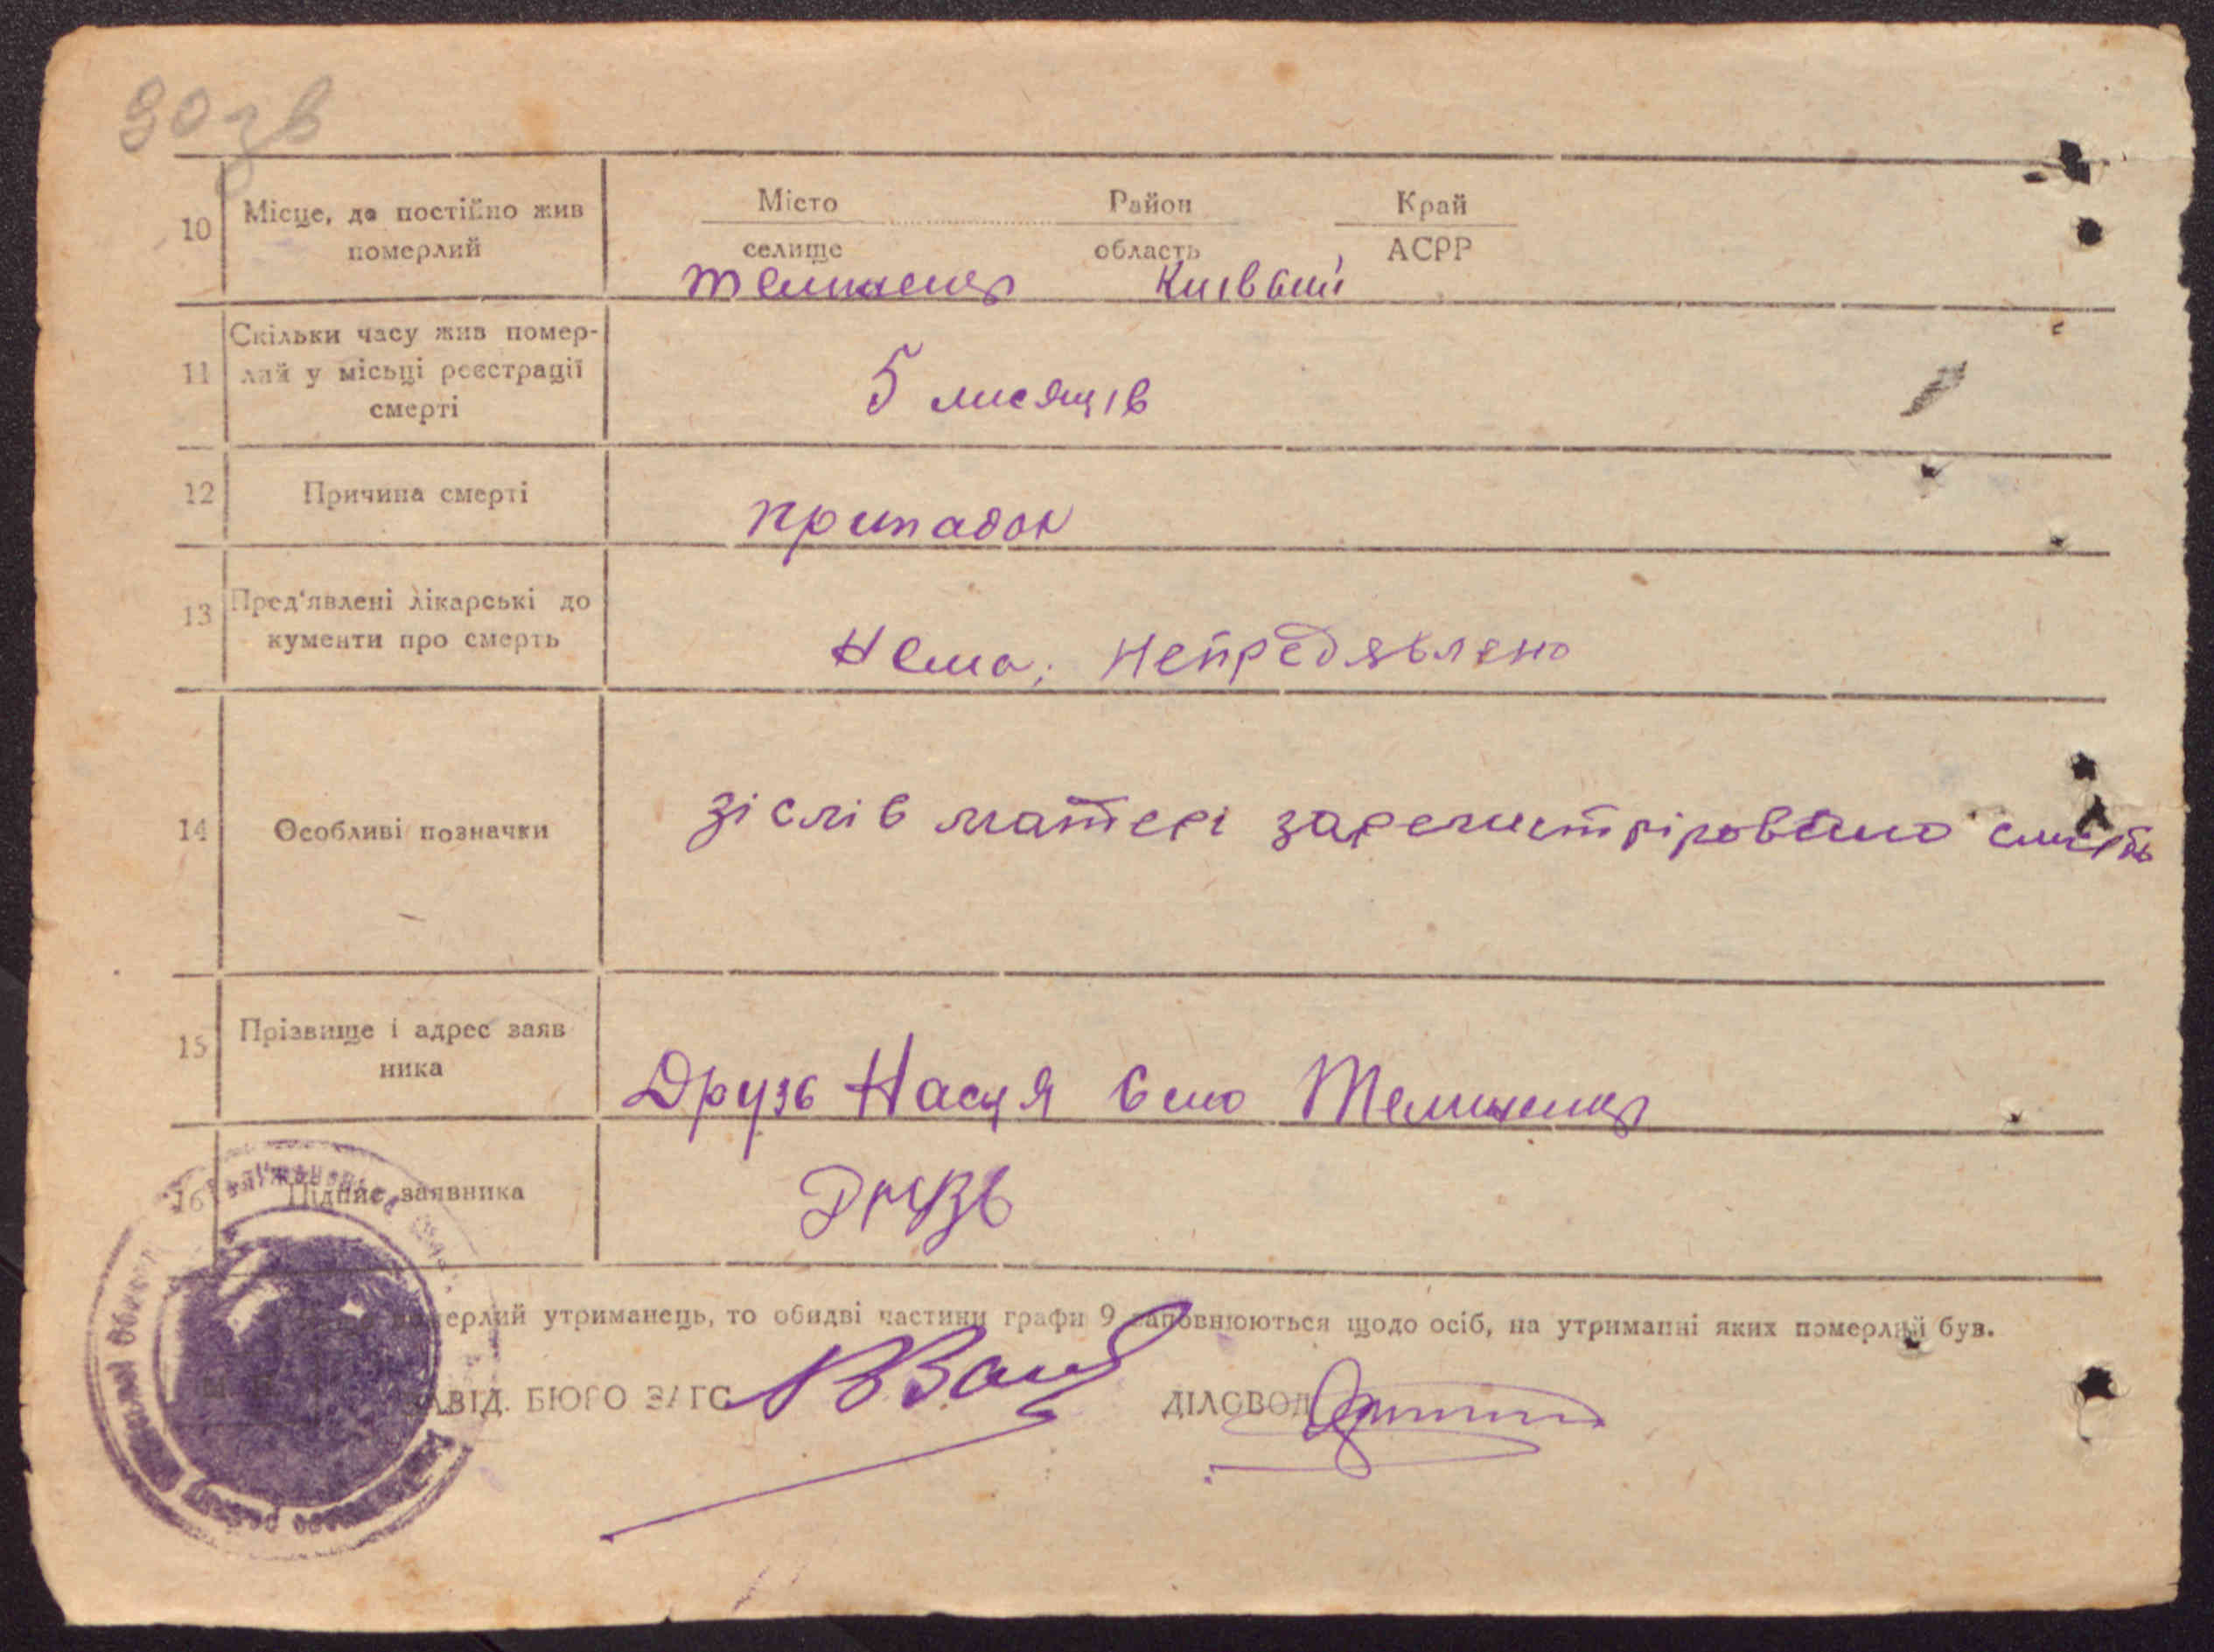 30 зв
10 Місце, де постійно жив померлий
Місто Район Край
селище область АСРР
Київський
11 Скільки часу жив помер-
лий у місьці реєстрації
смерті
5 мисяців
12 Причина смерті
припадок
13 Пред'явлені лікарські до
кументи про смерть
Нема; Непредявлено
14 Особливі позначки
зі слів матері смерть
15 Прізвище і адрес заяв
ника
Друзь Насця село
16 Підпис заявника
Друзь
померлий утриманець, то обидві частини графи 9 заповнюються щодо осіб, на утриманні яких померлий був.
ЗАВІД. БЮРО ЗАГС
ДІЛОВОД